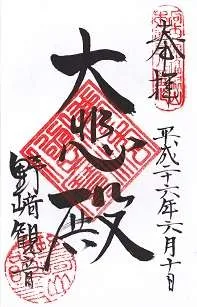 奉拝
平成二十六年六月十日
大悲殿
野崎観音